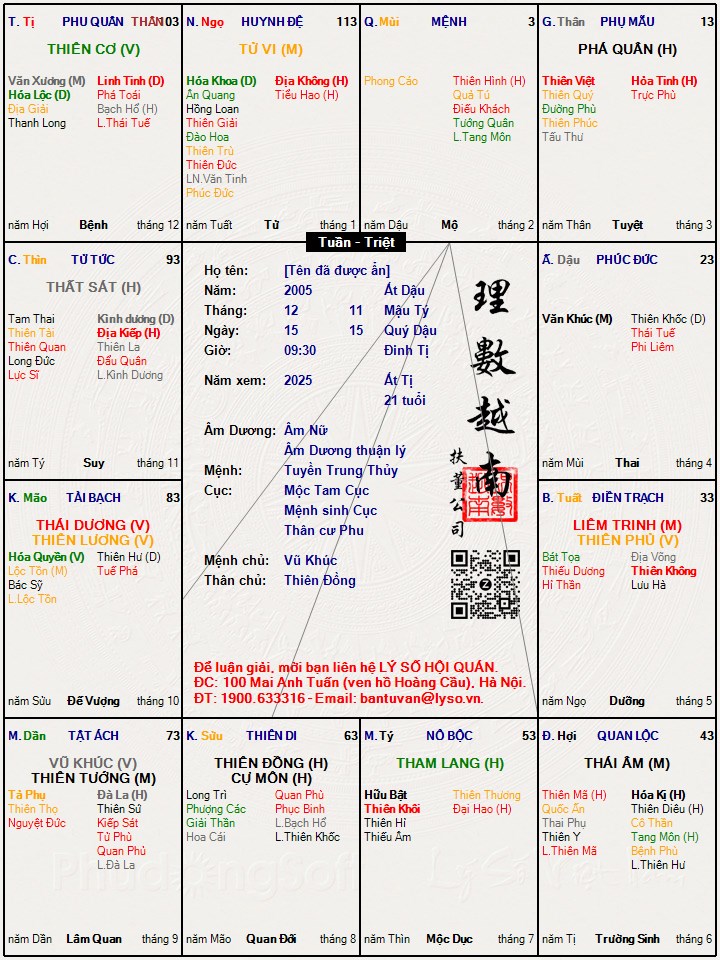 T. Tị PHU QUÂN THÂN 103
THIÊN CƠ (V)
Văn Xương (M) Linh Tinh (D)
Hóa Lộc (D) Phá Toái
Địa Giải Bạch Hổ (H)
Thanh Long L.Thái Tuế
năm Hợi Bệnh tháng 12
N. Ngọ HUYNH ĐỆ 113
TỬ VI (M)
Hóa Khoa (D) Địa Không (H)
Ân Quang Tiểu Hao (H)
Hồng Loan
Thiên Giải
Đào Hoa
Thiên Trù
Thiên Đức
LN.Văn Tinh
Phúc Đức
năm Tuất Tử tháng 1
Q. Mùi MỆNH 3
Phong Cáo Thiên Hình (H)
Quả Tú
Điếu Khách
Tướng Quân
L.Tang Môn
năm Dậu Mộ tháng 2
G. Thân PHỤ MẪU 13
PHÁ QUÂN (H)
Thiên Việt Hỏa Tinh (H)
Thiên Quý Trực Phù
Đường Phù
Thiên Phúc
Tấu Thư
năm Thân Tuyệt tháng 3
Tuần - Triệt
C. Thìn TỬ TỨC 93
THẤT SÁT (H)
Tam Thai Kình dương (D)
Thiên Tài Địa Kiếp (H)
Thiên Quan Thiên La
Long Đức Đẩu Quân
Lực Sĩ L.Kình Dương
năm Tý Suy tháng 11
Họ tên: [Tên đã được ẩn]
Năm: 2005 Ất Dậu
Tháng: 12 11 Mậu Tý
Ngày: 15 15 Quý Dậu
Giờ: 09:30 Đinh Tị
Năm xem: 2025 Ất Tị
21 tuổi
Âm Dương: Âm Nữ
Âm Dương thuận lý
Mệnh: Tuyền Trung Thủy
Cục: Mộc Tam Cục
Mệnh sinh Cục
Thân cư Phu
Mệnh chủ: Vũ Khúc
Thân chủ: Thiên Đồng
理數越南
扶董公司
Để luận giải, mời bạn liên hệ LÝ SỐ HỘI QUÁN.
ĐC: 100 Mai Anh Tuấn (ven hồ Hoàng Cầu), Hà Nội.
ĐT: 1900.633316 - Email: bantuvan@lyso.vn.
Ấ. Dậu PHÚC ĐỨC 23
Văn Khúc (M) Thiên Khốc (D)
Thái Tuế
Phi Liêm
năm Mùi Thai tháng 4
K. Mão TÀI BẠCH 83
THÁI DƯƠNG (V)
THIÊN LƯƠNG (V)
Hóa Quyền (V) Thiên Hư (D)
Lộc Tồn (M) Tuế Phá
Bác Sỹ
L.Lộc Tồn
năm Sửu Đế Vượng tháng 10
B. Tuất ĐIỀN TRẠCH 33
LIÊM TRINH (M)
THIÊN PHỦ (V)
Bát Tọa Địa Võng
Thiếu Dương Thiên Không
Hỉ Thần Lưu Hà
năm Ngọ Dưỡng tháng 5
M. Dần TẬT ÁCH 73
VŨ KHÚC (V)
THIÊN TƯỚNG (M)
Tả Phụ Đà La (H)
Thiên Thọ Thiên Sứ
Nguyệt Đức Kiếp Sát
Tử Phù
Quan Phủ
L.Đà La
năm Dần Lâm Quan tháng 9
K. Sửu THIÊN DI 63
THIÊN ĐỒNG (H)
CỰ MÔN (H)
Long Trì Quan Phù
Phượng Các Phục Binh
Giải Thần L.Bạch Hổ
Hoa Cái L.Thiên Khốc
năm Mão Quan Đới tháng 8
M. Tý NÔ BỘC 53
THAM LANG (H)
Hữu Bật Thiên Thương
Thiên Khôi Đại Hao (H)
Thiên Hỉ
Thiếu Âm
năm Thìn Mộc Dục tháng 7
Đ. Hợi QUAN LỘC 43
THÁI ÂM (M)
Thiên Mã (H) Hóa Kị (H)
Quốc Ấn Thiên Diêu (H)
Thai Phụ Cô Thần
Thiên Y Tang Môn (H)
L.Thiên Mã Bệnh Phù
L.Thiên Hư
năm Tị Trường Sinh tháng 6